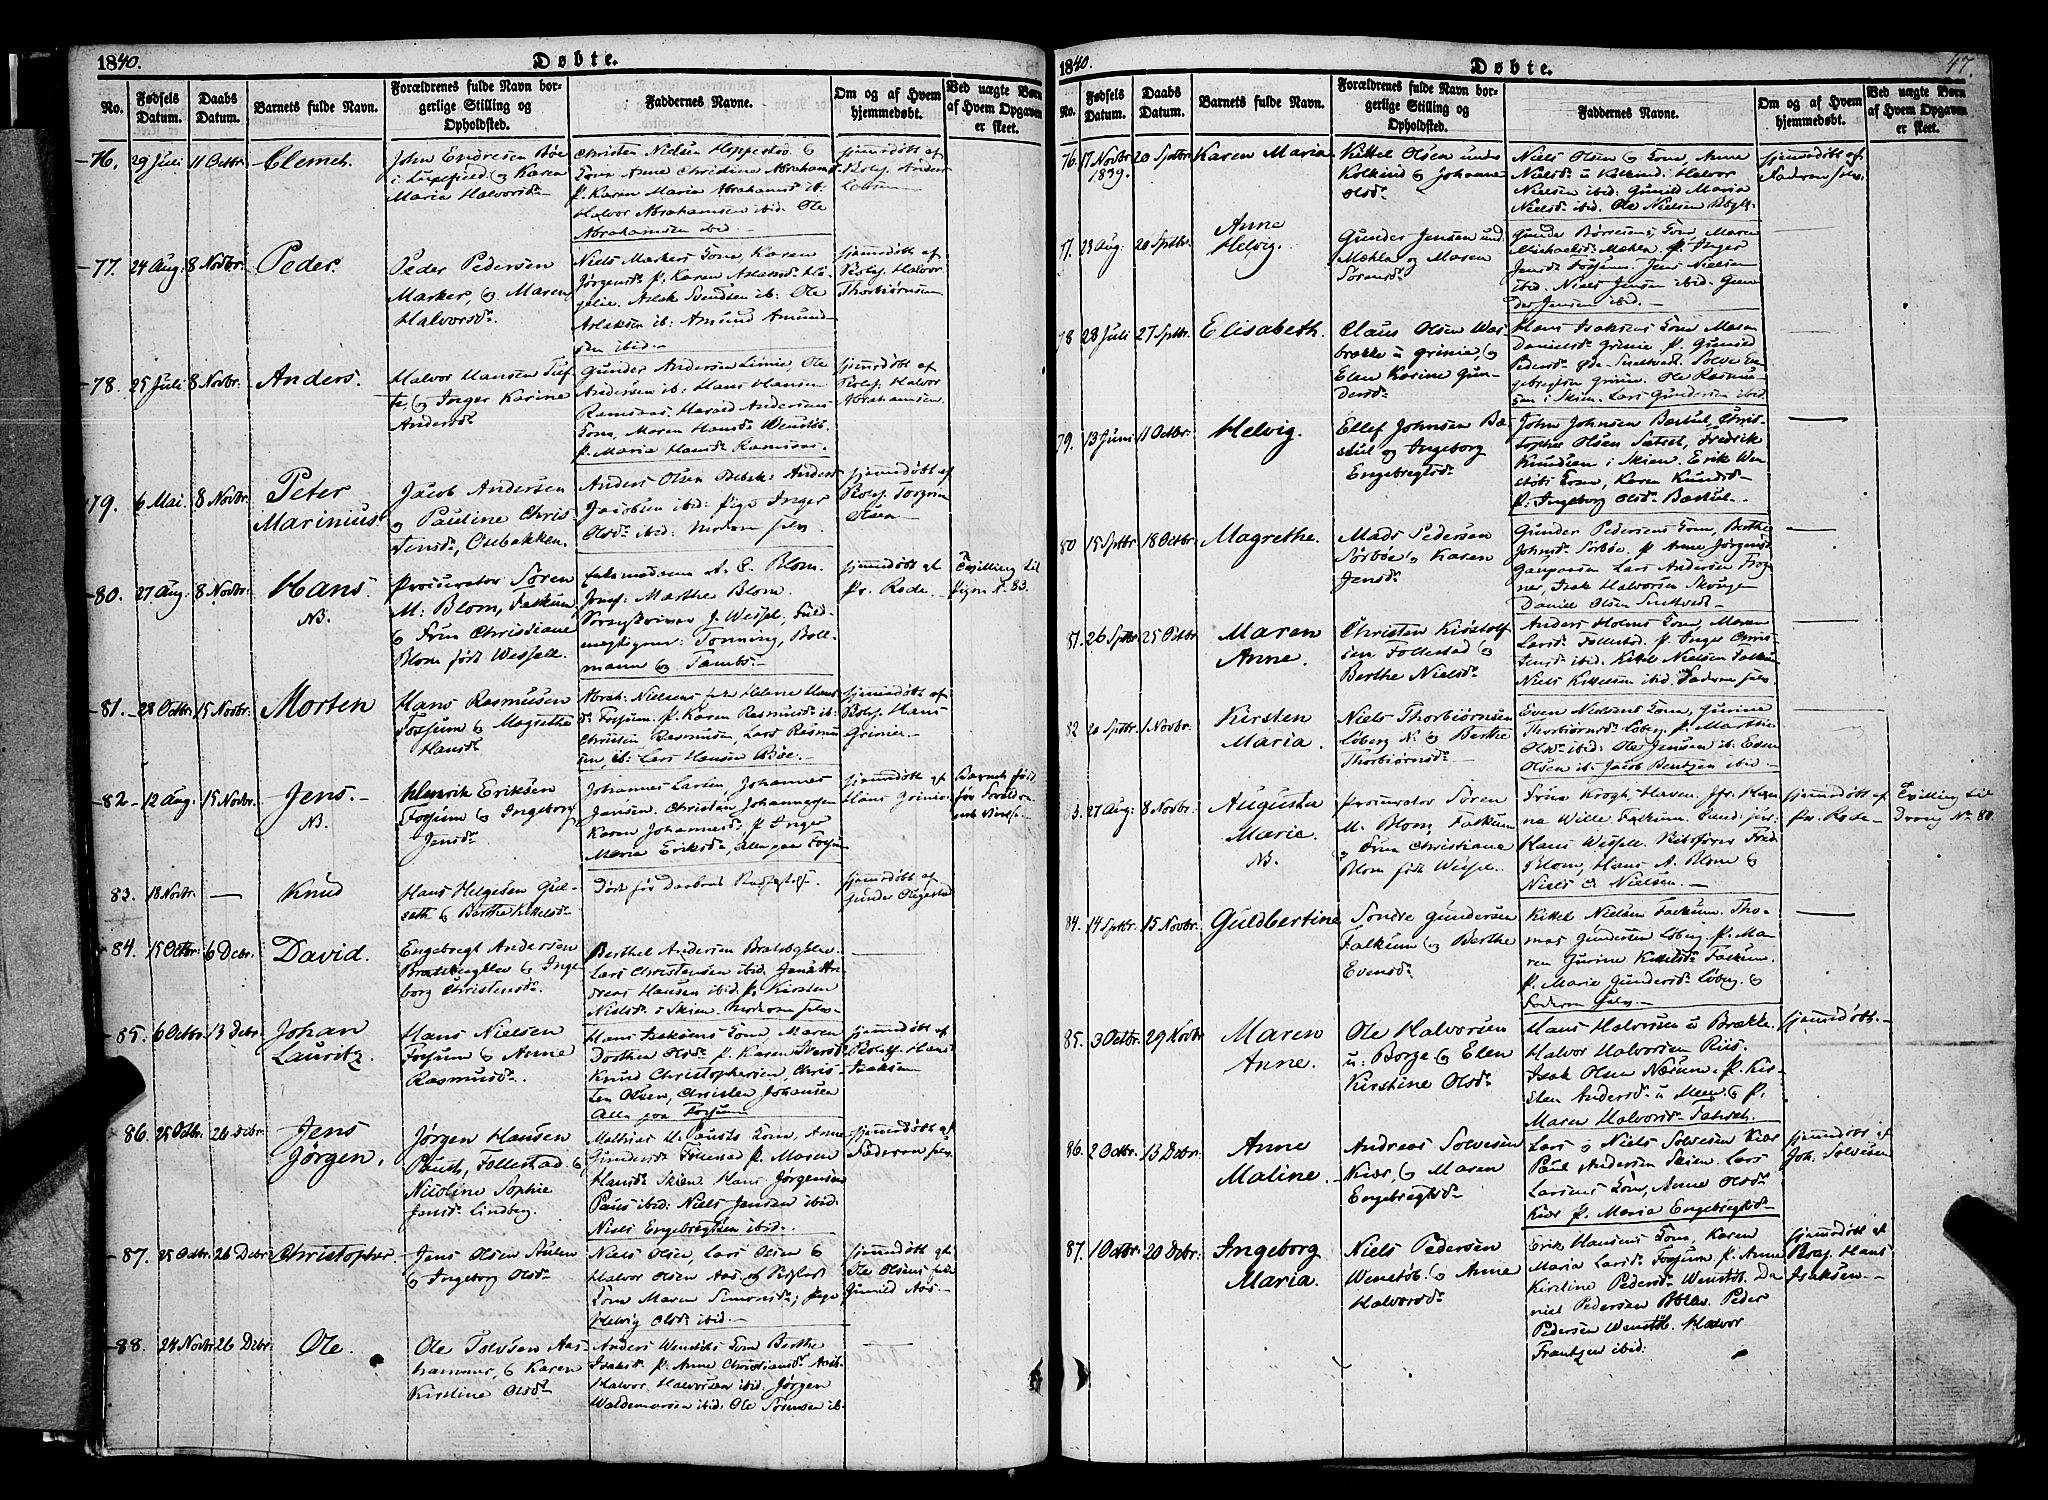 1840.
Døbte.
No.
Fødsels Datum.
Daabs Datum.
Barnets fulde Navn.
Forældrenes fulde Navn borgerlige Stilling og Opholdsted.
Faddernes Navne.
Om og af Hvem hjemmedøbt.
Ved uægte Børn af Hvem Opgaven er skeet.
76. 29 Juli 11 Octbr. Clemet.
John Endresen Bøe
Maria Halvorsd.
Christen Nielsen
Kone Anne Christine Abrahamsd
P. Karen Maria Abrahamsd ib.
Halvor Abrahamsen ibid. Ole
Abrahamsen ibid.
hjemmedøbt af
77. 24 Aug. 8 Novbr. Peder.
Peder Pedersen
Marker, og Maren
Halvorsd.
Niels Markers Kone, Karen
Jørgensd. P. Karen Aslaksd.
Aslak Svendsen ib: Ole
Aslaksen ib: Amund Amund-
sen ibid.
hjemmedøbt af
Halvor
Thorbiørnsen
78. 25 Juli 8 Novbr. Anders.
Halvor Hansen Tuf-
te, og Inger Karine
Andersd.
Gunder Andersen Limie, Ole
Andersen ib: Hans Hansen
Ramsaas, Harald Andersens
Kone, Maren Hansd. Wenstøb.
P. Maria Hansd. Ramsaas.
hjemmedøbt af
Halvor
Abrahamsen.
79. 6 Mai. 8 Novbr. Peter
Marinius
Jacob Andersen
og Pauline Chris-
tensd., Osebakken.
Anders Olsen Anders
Jacobsen ibid: Pige Inger
Olsd. ibid: Moderen selv
hjemmedøbt af
Torgrim
Olsen
80. 27 Aug. 8 Novbr. Hans.
NB.
Procurator Søren
M. Blom, Falkum
og Frue Christiane
Blom født Wessel.
A. C. Blom.
Jomf: Marthe Blom.
Sorenskriver J. Wessel, Fuld-
mægtigene: Tonning, Boll-
mann og Tambs.
hjemmedøbt af
Pr. Rode.
Tvilling til
Pigen N. 83.
81. 28 Octbr. 15 Novbr. Morten
Hans Rasmusen
Fossum og Magrethe
Hansd.
Abrah: Nielsens Helene Hans
d. Fossum. P. Karen Rasmusd ib:
Christen Rasmusen, Lars Rasmu
sen, ib: Lars Hansen Bøe.
hjemmedøbt af
Hans
Grinie.
82. 12 Aug. 15 Novbr. Jens.
NB.
Henrik Eriksen
Fossum og Ingeborg
Jensd.
Johannes Larsen, Johannes
Jensen. Christen Johannessen
Karen Johannesd. P. Inger
Maria Eriksd., alle paa Fossum
hjemmedøbt af
Hans Grinie.
Barnet født
før Forældre-
nes
83. 18 Novbr. — Knud
Hans Helgesen Gul-
seth og Berthe Kittelsd.
Død før Daabens
hjemmedøbt af
Gunder
84. 15 Octbr: 6 Debr. David.
Engebregt Andersen
og Inge-
borg Christensd.
Berthel Andersen
Lars Christensen ibid. Jens An-
dreas Hansen ibid. P. Kirsten
Nielsd. i Skien. Moderen selv
85. 6 Octbr. 13 Debr. Johan
Lauritz.
Hans Nielsen
Fossum og Anne
Rasmusd.
Hans Isaksens Kone Maren
Dorthea Olsd. P. Karen Iversd
Knud Christophersen, Chris-
ten Olsen, Christen Johansen
Alle paa Fossum
hjemmedøbt af
Hans
Isaksen
86. 25 Octbr. 26 Debr. Jens
Jørgen.
Jørgen Hansen
Paus, Follestad og
Nicoline Sophie
Jensd. Lindberg.
Mathias Pausts Kone, Anne
Gundersd. Follestad P. Maren
Hansd. Skien. Hans Jørgensen
Paus ibid: Niels Jensen ibid.
Niels Engebregtsen ibid.
hjemmedøbt af
Faderen selv.
87. 25 Octbr. 26 Debr. Christopher.
Jens Olsen
og Ingeborg Olsd.
Niels Olsen, Lars Olsen og
Halvor Olsen Aas.
Kone Maren Simonsd., Pige
Helvig Olsd. ibid.
hjemmedøbt af
Ole Olsens
Gunild Aas.
88. 24 Novbr. 26 Debr. Ole.
Ole Tolvsen Aas-
hammer, og Karen
Kirstine Olsd.
Anders Wenstøbs Kone Berthe
Isaksd. P. Anne Christiansd.
Halvor Halvorsen ibid. Jørgen
Waldemarsen ibid. Ole Sørensen ib.
1840.
Døbte.
47.
No.
Fødsels Datum.
Daabs Datum.
Barnets fulde Navn.
Forældrenes fulde Navn borgerlige Stilling og Opholdsted.
Faddernes Navne.
Om og af Hvem hjemmedøbt.
Ved uægte Børn af Hvem Opgaven er skeet.
76. 17 Novbr 1839. 20 Sptbr. Karen Maria
Kittel Olsen under
Kolkind og Johanne
Olsd.
Niels Olsen og Kone, Anne
Nielsd. u Kolkind. Halvor
Nielsen ibid: Gunild Maria
Nielsd. ibid. Ole Nielsen
hjemmedøbt af
Faderen selv.
77. 23 Aug. 20 Sptbr. Anne
Helvig.
Gunder Jensen und.
Mæhla og Maren
Sørensd.
Gunder Børresens Kone Maren
Michaelsd. Mæhla P. Inger
Jensd. Fossum. Jens Nielsen
ibid. Niels Jensen ibid. Gun-
der Jensen ibid.
78 28 Juli 27 Sptbr. Elisabeth.
Claus Olsen Was-
brække u Grinie, og
Elen Karine Gun-
dersd.
Hans Isaksens Kone Maren
Danielsd. Grinie P. Gunild
Pedersd. Solve En-
gebregtsen Grinie. Ole Rasmu-
sen i Skien. Lars Gundersen ibid.
79. 13 Juni 11 Octbr. Helvig.
Ellef Johnsen Bæ-
stul og Ingeborg
Engebregtsd.
John Johnsen Bestul, Chris-
topher Olsen Satset, Fredrik
Knudsen i Skien. Erik Wen-
støbs Kone, Karen Knudsd.
P. Ingeborg Olsd. Bæstul.
80 15 Sptbr. 18 Octbr. Magrethe.
Mads Pedersen
Sørbøe og Karen
Jensd.
Gunder Pedersens Kone, Berthe
Johnsd. Sørbøe. P. Anne Jørgensd
Lars Andersen Frog-
ner, Isak Halvorsen
Daniel Olsen
81. 26 Sptbr. 25 Octbr. Maren
Anne.
Christen Kiøstolf-
sen Follestad og
Berthe Nielsd.
Anders Holms Kone, Maren
Larsd. Follestad. P. Inger Chris-
tensd. ibid. Kittel Nielsen Falkum
Niels Kittelsen ibid. Faderen selv
82 20 Sptbr. 1 Novbr. Kirsten
Maria.
Niels Thorbiørnsen
Løberg N. og Berthe
Thorbiørnsd.
Even Nielsens Kone, Gurine
Thorbiørnsd. Løberg. P. Marthe
Olsd. ibid: Ole Jensen ib: Even
Olsen ib: Jacob Bentzen ibid
3. 27 Aug: 8 Novbr. Augusta
Marie.
NB.
Procurator Søren
M. Blom, Falkum
og Frue Christiane
Blom født Wessel.
Frue Krogh Haven. Jfr. Han-
na Wille Falkum.
Hans Wessel.
Blom, Hans A. Blom og
Niels Nielsen.
hjemmedøbt af
Pr. Rode
Tvilling til
Dreng N. 80.
84. 14 Sptbr. 15 Novbr. Guldbertine
Sondre Gundersen
Falkum og Berthe
Evensd.
Kittel Nielsen Falkum. Tho-
mas Gundersen Løberg. P. Ma-
ren Gurine Kittelsd. Falkum.
P. Marie Gundersd. Løberg. og
Faderen selv.
85. 3 Octbr. 29 Novbr Maren
Anne.
Ole Halvorsen
u: Borge og Elen
Kirstine Olsd.
Hans Halvorsen u Brække.
Halvor Halvorsen Riis.
Isak Olsen Næsum. P. Kir-
sten Andersd. u Meen. og P.
Maren Halvorsd.
hjemmedøbt.
86. 2 Octbr. 13 Debr. Anne
Maline.
Andreas Solvesen
Kiær, og Maren
Engebregtsd.
Lars og Niels Solvesen Kiær
Paul Andersen Skien. Lars
Larsens Kone, Anne Olsd.
Kiær P. Maria Engebregtsd.
hjemmedøbt af
Joh. Solvesen
87. 1 Octbr. 20 Debr. Ingeborg
Maria.
Niels Pedersen
Wenstøb. og Anne
Halvorsd.
Erik Hansens Kone, Karen
Maria Larsd. Fossum P. Anne
Kirstine Pedersd. Wenstøb. Da-
niel Pedersen Peder
Pedersen Wenstøb. Halvor
Frantzen ibid.
hjemmedøbt af
Hans
Isaksen.